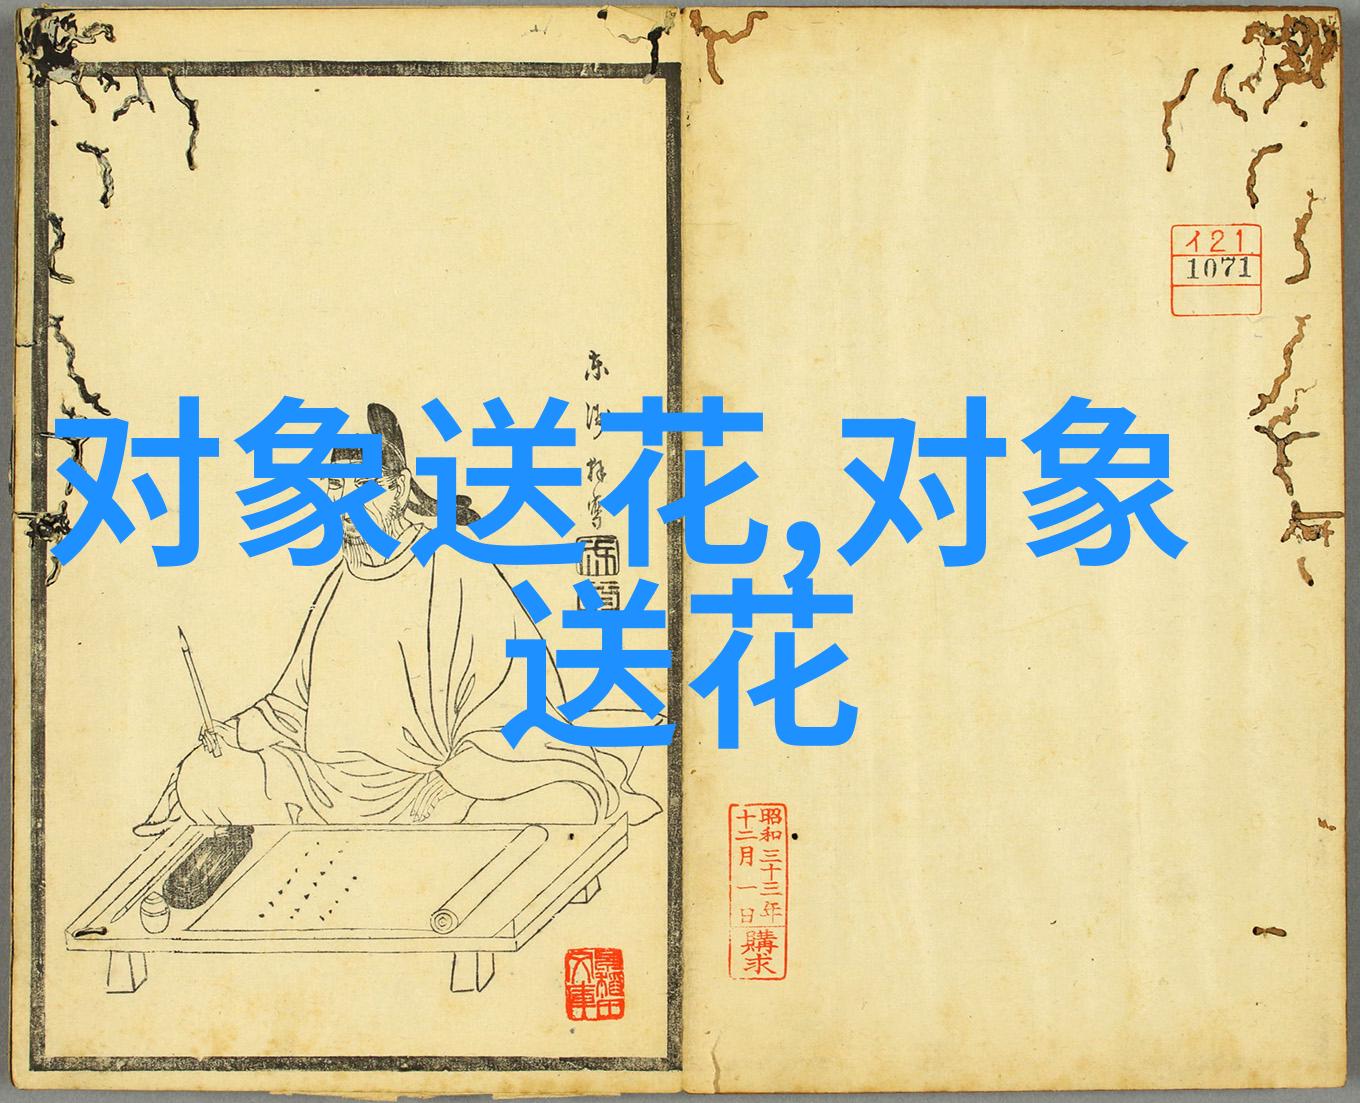 对象送花,对象
送花
イ21
1071
昭和三十三年
十二月一日
購求